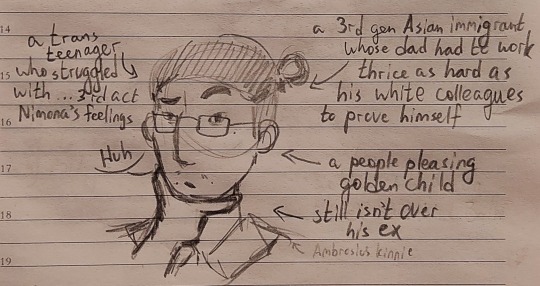 14
15
16
17
18
19
a trans
teenager
who struggled
with ... 3rd act
Nimona's feelings
Huh
a 3rd gen Asian immigrant
whose dad had to work
thrice as hard as
his white colleagues
to prove himself
a people pleasing
golden child
still isn't over
his ex
Ambrosius kinnie